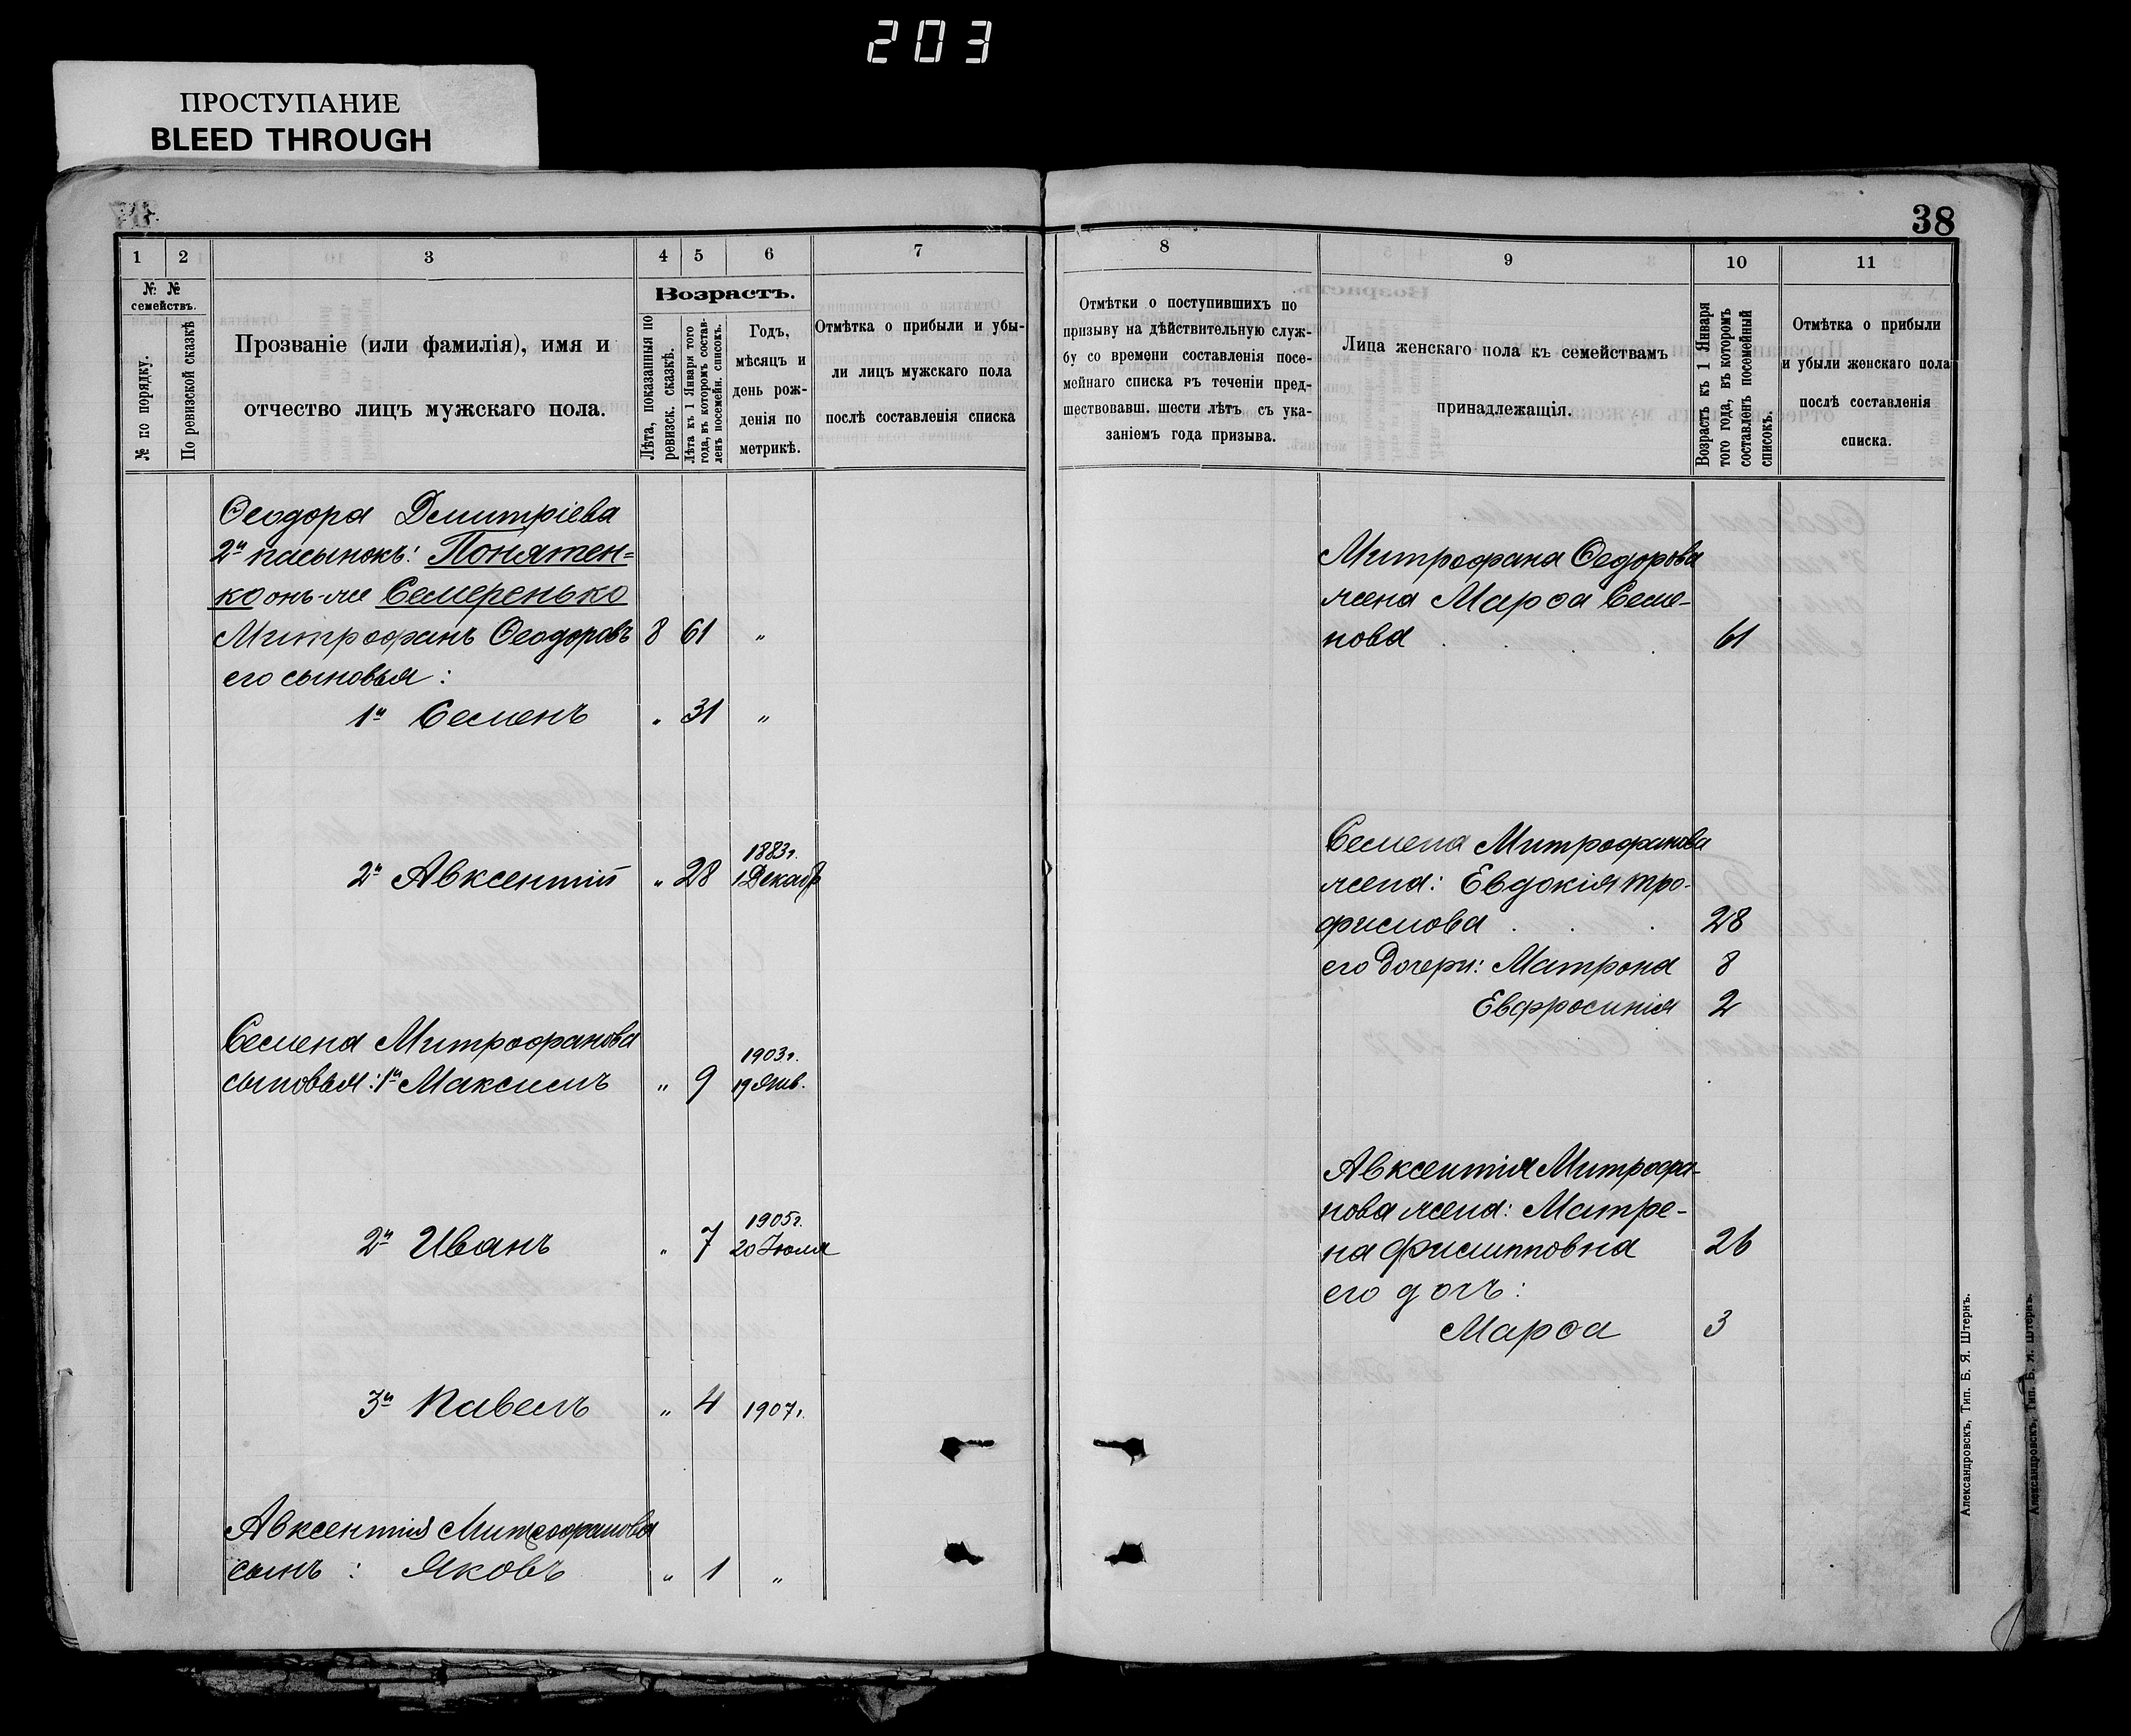 203
ПРОСТУПАНИЕ
BLEED THROUGH
38
1 2 3 4 5 6 7
№ № семействъ.
№ по порядку.
По ревизской сказкѣ
Прозваніе (или фамилія), имя и
отчество лицъ мужскаго пола.
Возрастъ.
Лѣта, показанныя по
ревизск. сказкѣ.
Лѣта къ 1 Января того
года, въ которомъ состав-
ленъ посемейн. списокъ.
Годъ,
мѣсяцъ и
день рож-
денія по
метрикѣ.
Отмѣтка о прибыли и убы-
ли лицъ мужскаго пола
послѣ составленія списка
Ѳеодора Дмитріева
2й пасынокъ: Понятен=
ко онъ-же Семеренько
Митрофанъ Ѳеодоровъ 8 61 „
его сыновья:
1й Семенъ „ 31 „
2й Авксентій „ 28 1883г. 1 Декабр
Семена Митрофанова
сыновья: 1й Максимъ „ 9 1903г. 19 Янв.
2й Иванъ „ 7 1905г. 20 Іюля
3й Павелъ „ 4 1907г.
Авксентія Митрофанова
сынъ: Яковъ „ 1 „
8 9 10 11
Отмѣтки о поступившихъ по
призыву на дѣйствительную служ-
бу со времени составленія посе-
мейнаго списка въ теченіи пред-
шествовавш. шести лѣтъ съ ука-
заніемъ года призыва.
Лица женскаго пола къ семействамъ
принадлежащія.
Возрастъ къ 1 Января
того года, въ которомъ
составленъ посемейный
списокъ.
Отмѣтка о прибыли
и убыли женскаго пола
послѣ составленія
списка.
Митрофана Ѳедорова
жена Марѳа Семе-
нова . . . 61
Семена Митрофанова
жена: Евдокія Тро-
фимова . . . 28
его дочери: Матрона 8
Евфросинія 2
Авксентія Митрофа-
нова жена: Матре-
на Филипповна 26
его дочь:
Марѳа 3
Александровскъ, Тип. Б. Я. Штернъ.
Александровскъ, Тип. Б. Я. Штернъ.